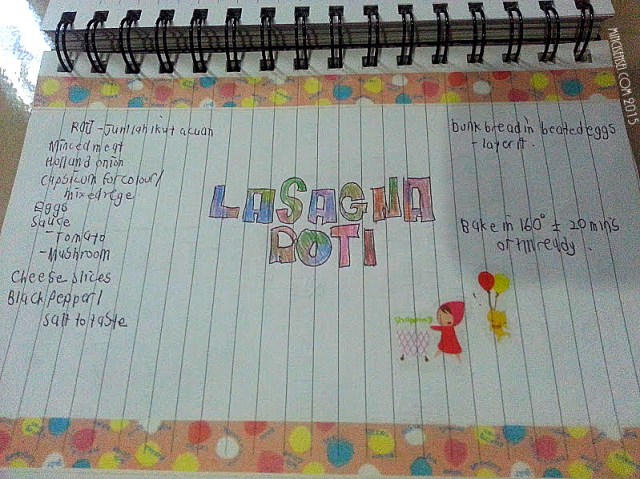 ROTI - jumlah ikut acuan
Minced meat
Holland onion
Capsicum for colour/
mixed vege
eggs
Sauce
- Tomato
- Mushroom
Cheese slices
Black pepper/
salt to taste
LASAGNA
ROTI
Dunk bread in beated eggs
- layer it.
Bake in 160° ± 20 mins
or til ready.
shopping